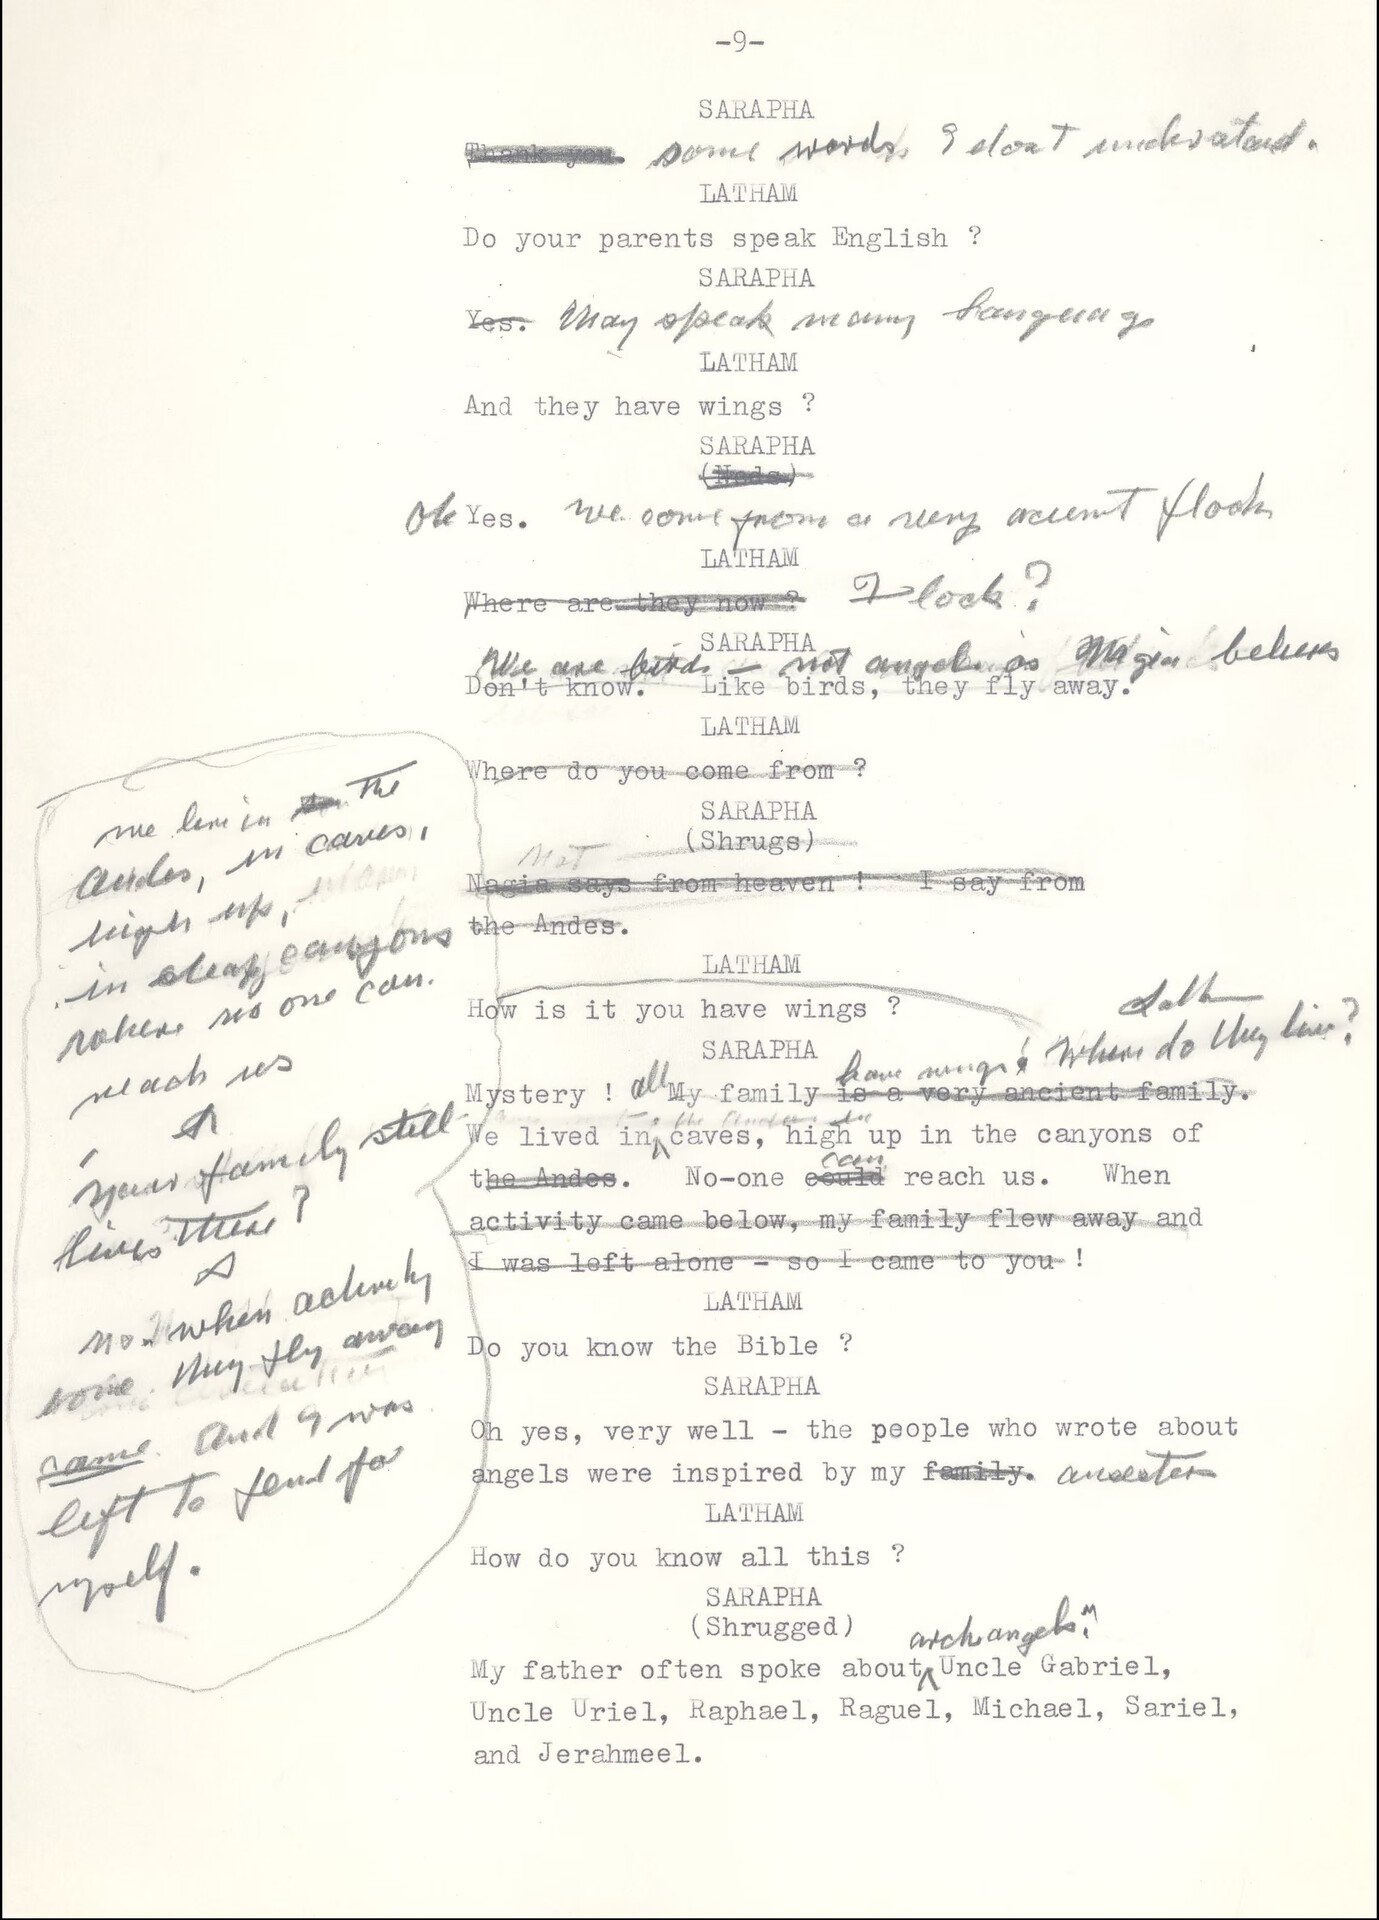 -9-
SARAPHA
Thank you. some words I dont understand.
LATHAM
Do your parents speak English ?
SARAPHA
Yes. They speak many languages
LATHAM
And they have wings ?
SARAPHA
(Nods)
Oh Yes. we come from a very ancient flock
LATHAM
Where are they now ? Flock?
SARAPHA
We are birds — not angels as Nagia believes
Don't know. Like birds, they fly away.
LATHAM
Where do you come from ?
SARAPHA
(Shrugs)
Not
Nagia says from heaven ! I say from
the Andes.
LATHAM
How is it you have wings ?
SARAPHA
have wings! Where do they live?
Mystery ! all My family is a very ancient family.
We lived in caves, high up in the canyons of
can
the Andes. No-one could reach us. When
activity came below, my family flew away and
I was left alone - so I came to you !
LATHAM
Do you know the Bible ?
SARAPHA
Oh yes, very well - the people who wrote about
angels were inspired by my family. ancestors
LATHAM
How do you know all this ?
SARAPHA
(Shrugged)
archangels
My father often spoke about Uncle Gabriel,
Uncle Uriel, Raphael, Raguel, Michael, Sariel,
and Jerahmeel.
we live in the
Andes, in caves,
high up,
in steep canyons
where no one can
reach us
your family still
lives there?
no. when activity
came they fly away
came And I was
left to fend for
myself.